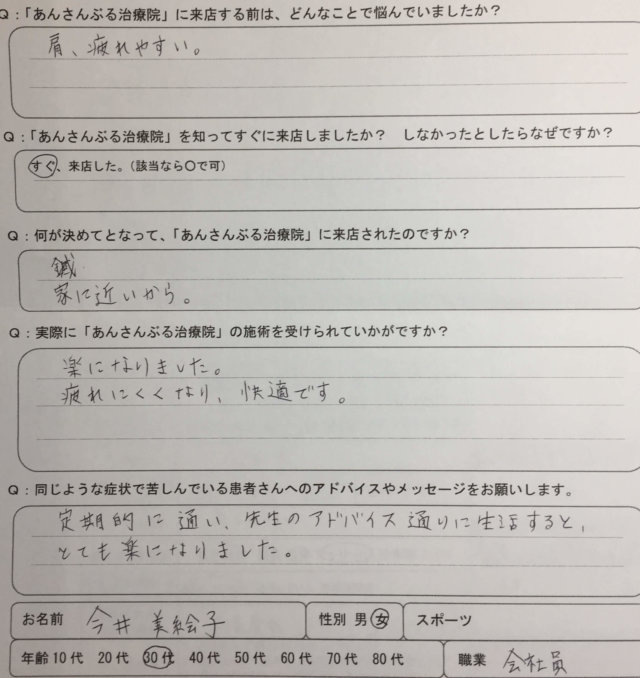 Q：「あんさんぶる治療院」に来店する前は、どんなことで悩んでいましたか？
肩、疲れやすい。
Q：「あんさんぶる治療院」を知ってすぐに来店しましたか？　しなかったとしたらなぜですか？
すぐ、来店した。（該当なら〇で可）
Q：何が決めてとなって、「あんさんぶる治療院」に来店されたのですか？
鍼
家に近いから。
Q：実際に「あんさんぶる治療院」の施術を受けられていかがですか？
楽になりました。
疲れにくくなり、快適です。
Q：同じような症状で苦しんでいる患者さんへのアドバイスやメッセージをお願いします。
定期的に通い、先生のアドバイス通りに生活すると、
とても楽になりました。
お名前　今井 美絵子　性別 男 女　スポーツ
年齢 10代　20代　30代　40代　50代　60代　70代　80代　職業　会社員